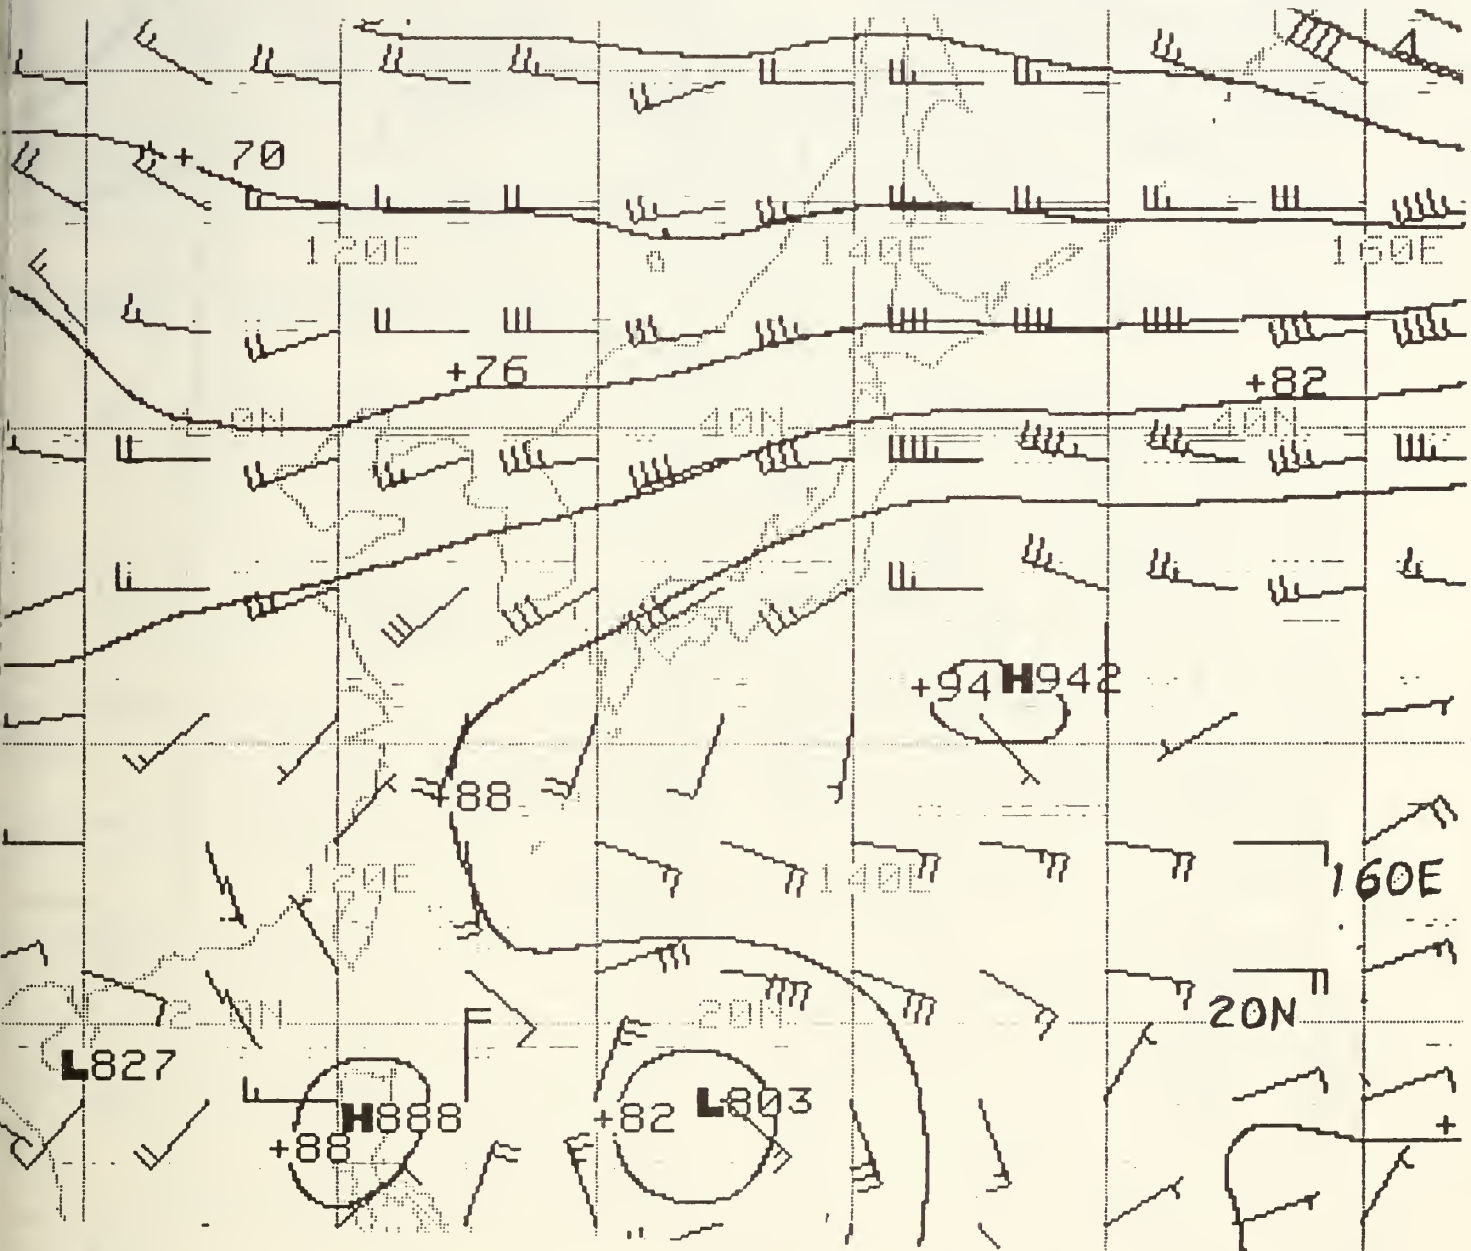 4
+ 70
120E 140E 160E
+76
+82
40N 40N 40N
+94 H942
+88
120E 140E 160E
20N 20N 20N
L827
H888 +82 L803
+88
+